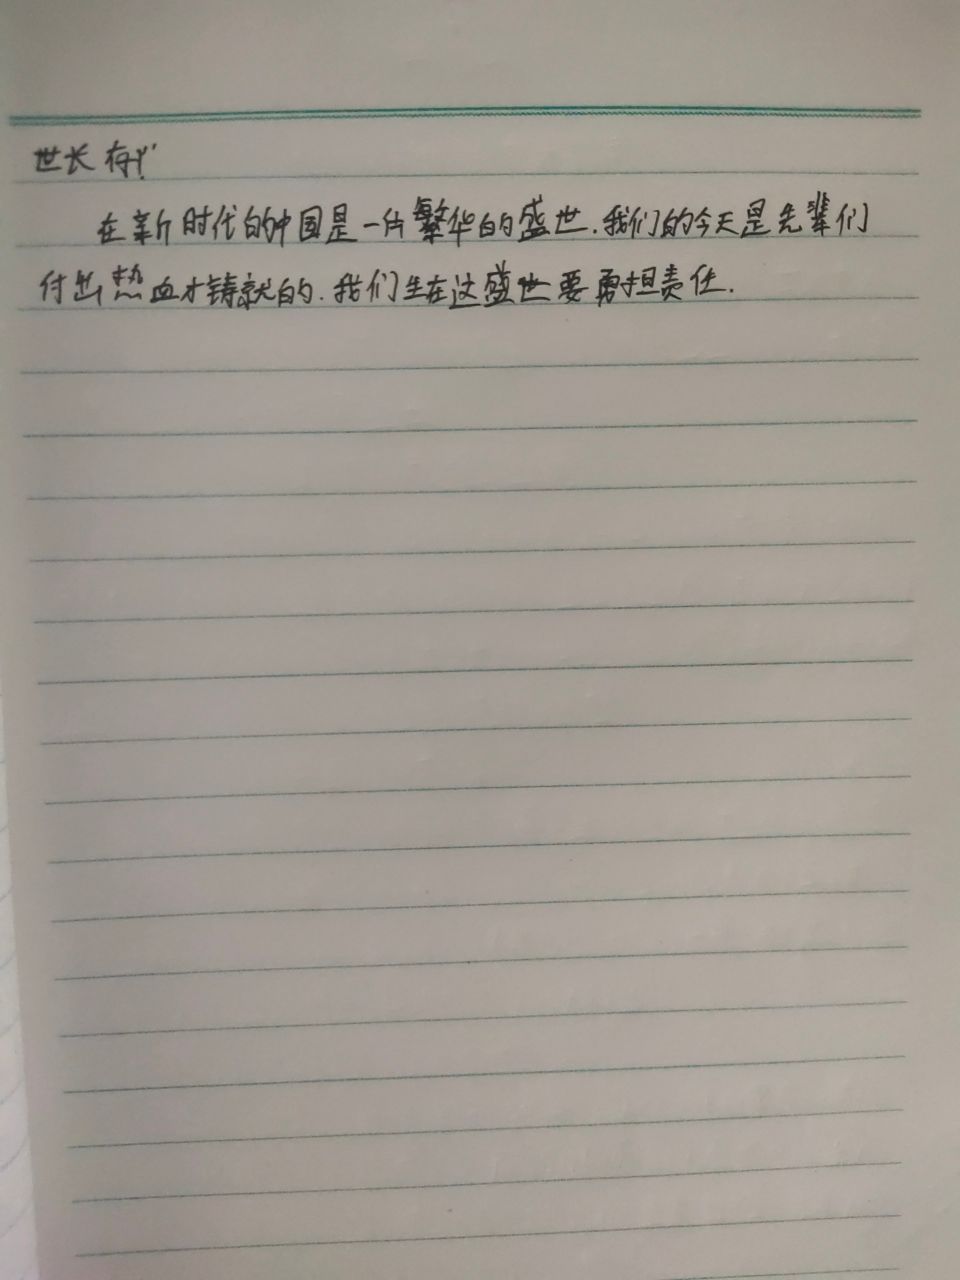 世长存!"
在新时代的中国是一片繁华的盛世.我们的今天是先辈们
付出热血才铸就的.我们生在这盛世要勇担责任.